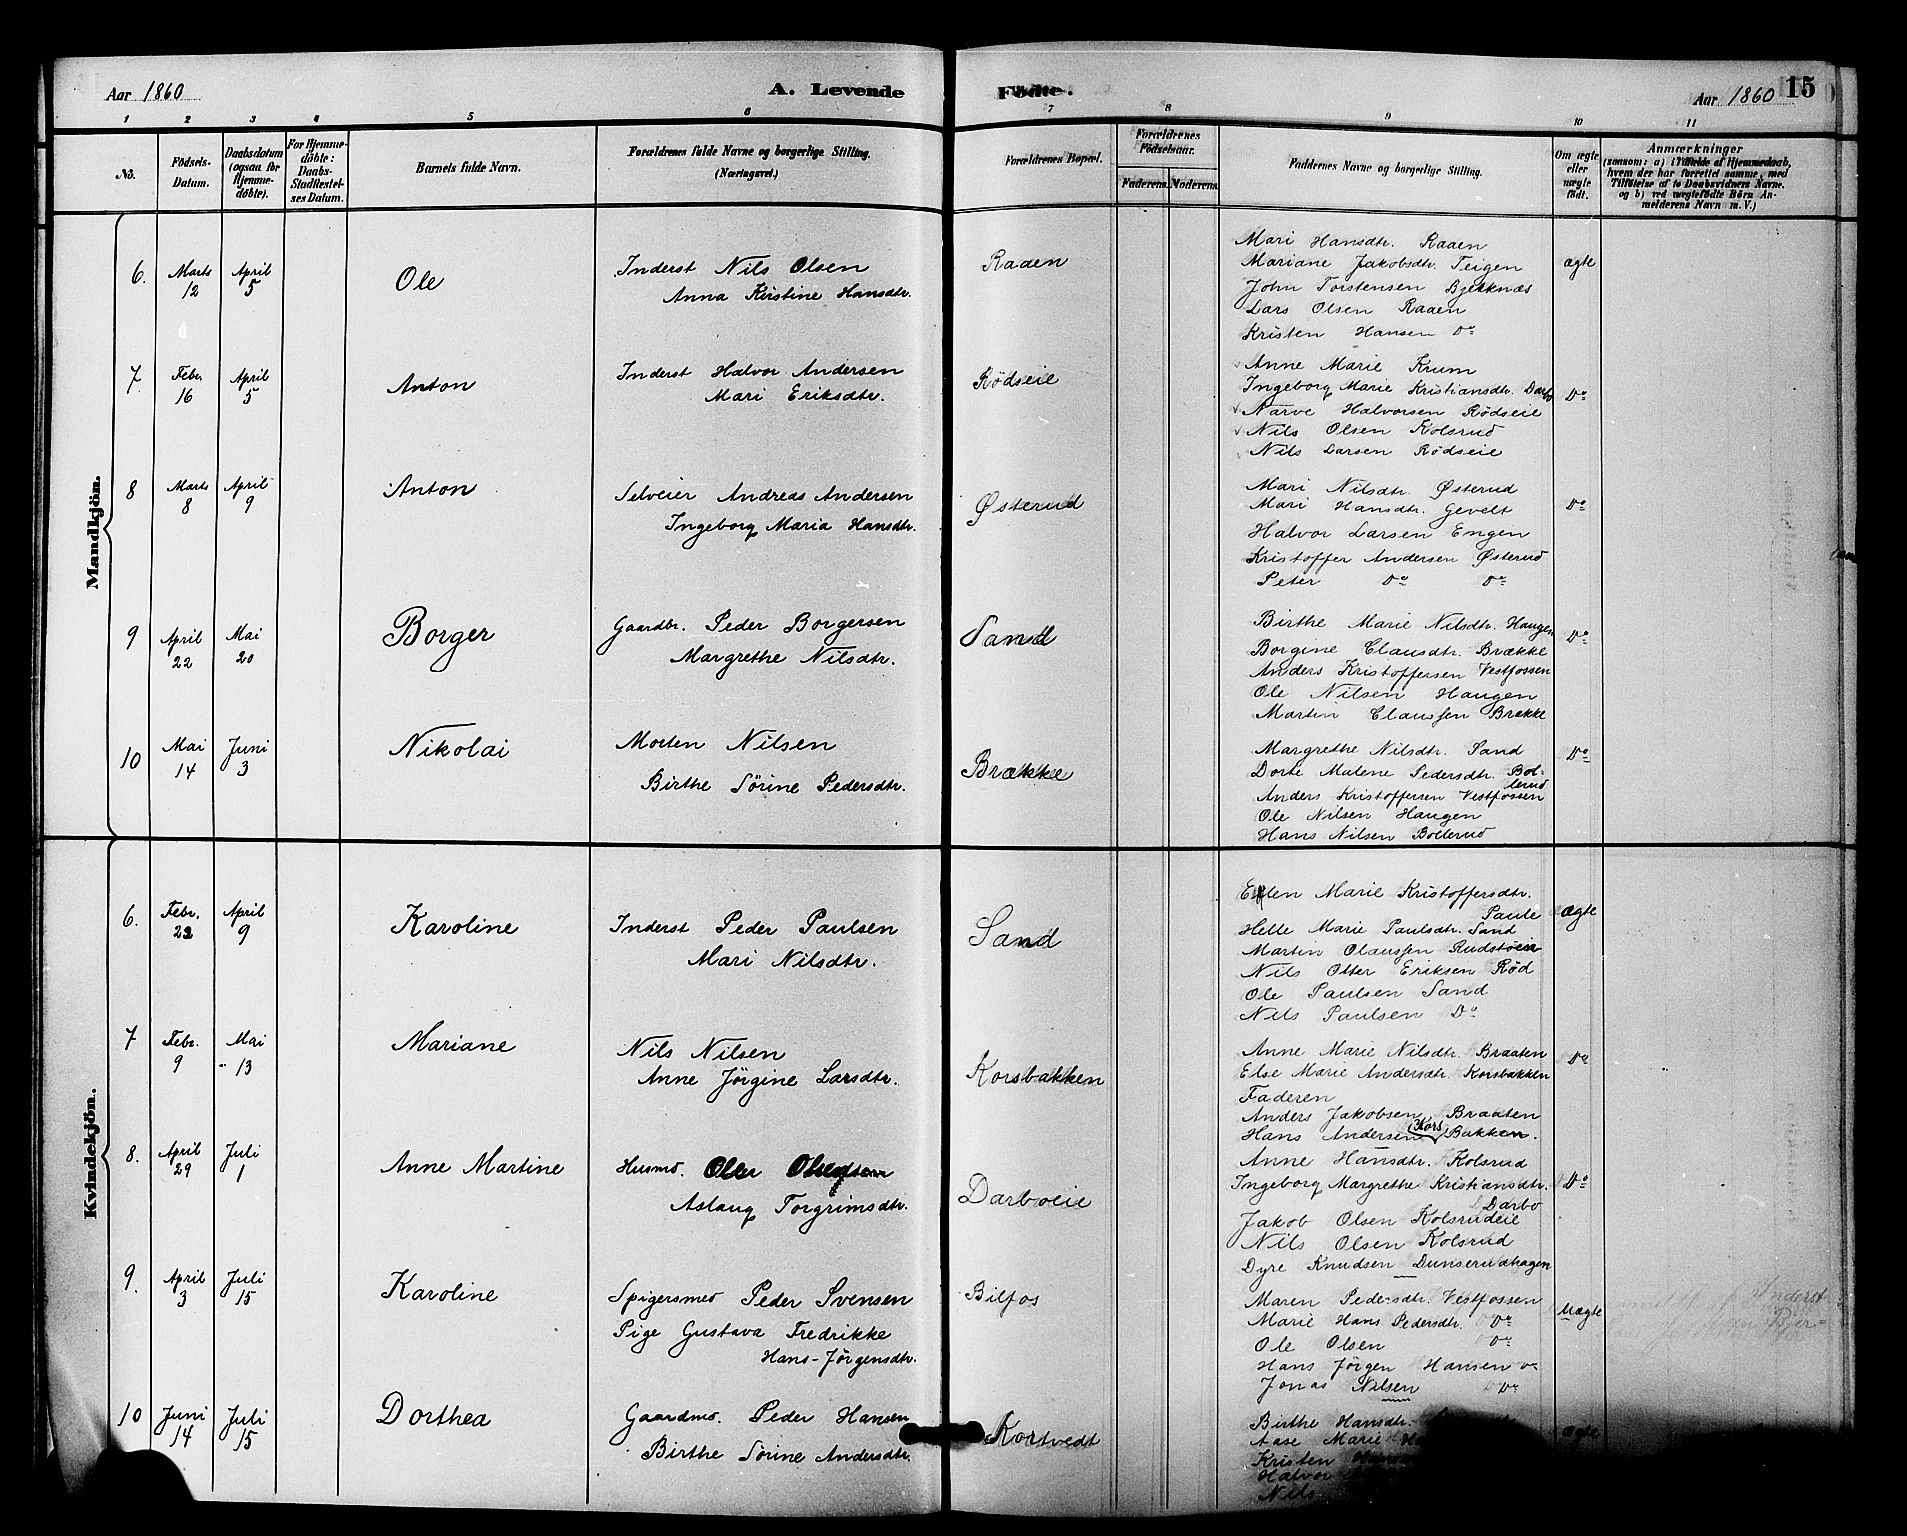 Aar 1860
A. Levende Fødte.
Aar 1860 15
1 2 3 4 5 6 7 8 9 10 11
No.
Fødsels-Datum.
Daabsdatum (ogsaa for Hjemmedøbte).
For Hjemmedøbte: Daabs-Stadfæstelses Datum.
Barnets fulde Navn.
Forældrenes fulde Navne og borgerlige Stilling. (Næringsvei.)
Forældrenes Bopæl.
Forældrenes Fødselsaar.
Faderens. Moderens.
Faddernes Navne og borgerlige Stilling.
Om ægte eller uægte født.
Anmærkninger
(saasom: a) i Tilfælde af Hjemmedaab,
hvem der har forrettet samme, med
Tilføielse af to Daabsvidners Navne,
og b) ved uægtefødte Børn An-
melderens Navn m. V.)
Mandkjön.
6. Marts 12 April 5 Ole
Inderst Nils Olsen
Anna Kirstine Hansdtr.
Raaen
Mari Hansdtr. Raaen
Mariane Jakobsdtr. Teigen
John Torstensen Bjerknæs
Lars Olsen Raaen
Kristen Hansen Do
ægte
7. Febr. 16 April 5 Anton
Inderst Halvor Andersen
Mari Eriksdtr.
Rödseie
Anne Marie Krum
Ingeborg Marie Kristiansdtr. Darbo
Narve Halvorsen Rödseie
Nils Olsen Kolsrud
Nils Larsen Rödseie
Do
8 Marts 8 April 9 Anton
Selveier Andreas Andersen
Ingeborg Maria Hansdtr.
Østerud
Mari Nilsdtr. Østerud
Mari Hansdtr. Gevelt
Halvor Larsen Engen
Kristoffer Andersen Østerud
Peter Do Do
Do
9 April 22 Mai 20 Borger
Gaardbr. Peder Borgersen
Margrethe Nilsdtr.
Sand
Birthe Marie Nilsdtr. Haugen
Borgine Clausdtr. Brække
Anders Kristoffersen Vestfossen
Ole Nilsen Haugen
Martin Claussen Brække
Do
10 Mai 14 Juni 3 Nikolai
Morten Nilsen
Birthe Sörine Pedersdtr.
Brække
Margrethe Nilsdtr. Sand
Dorte Malene Pedersdtr. Bol-
lerud
Anders Kristoffersen Vestfossen
Ole Nilsen Haugen
Hans Nilsen Bollerud
Do
Kvindekjön.
6. Febr. 22 April 9 Karoline
Inderst Peder Paulsen
Mari Nilsdtr.
Sand
Ellen Marie Kristoffersdtr.
Saule
Helle Marie Paulsdtr. Sand
Martin Olaussen Rudstöen
Nils Otter Eriksen Röd
Ole Paulsen Sand
Nils Paulsen Do
ægte
7 Febr. 9 Mai 13 Mariane
Nils Nilsen
Anne Jörgine Larsdtr.
Korsbakken
Anne Marie Nilsdtr. Braaten
Else Marie Andersdtr. Korsbakken
Faderen
Anders Jakobsen Braaten
Hans Andersen Kors Bakken.
Do
8. April 29 Juli 1 Anne Martine
Husmd. Oler Olsen
Aslaug Torgrimsdtr.
Darboeie
Anne Hansdtr. Kolsrud
Ingeborg Margrethe Kristiansdtr.
Darbo
Jakob Olsen Kolsrudeie
Nils Olsen Kolsrud
Dyre Knudsen Dunserudhagen
Do
9. April 3 Juli 15 Karoline
Spigersmed Peder Svensen
Pige Gustava Fredrikke
Hans-Jörgensdtr.
Bilfos
Maren Pedersdtr. Vestfossen
Marie Hans Pedersdtr. Do
Ole Olsen Do
Hans Jörgen Hansen Do
Jonas Nilsen Do
Uægte
Inderst
10 Juni 14 Juli 15 Dorthea
Gaardmd. Peder Hansen
Birthe Sörine Andersdtr.
Kortvedt
Birthe Hansdtr.
Aase Marie
Kristen
Halvor
Nils
ægte